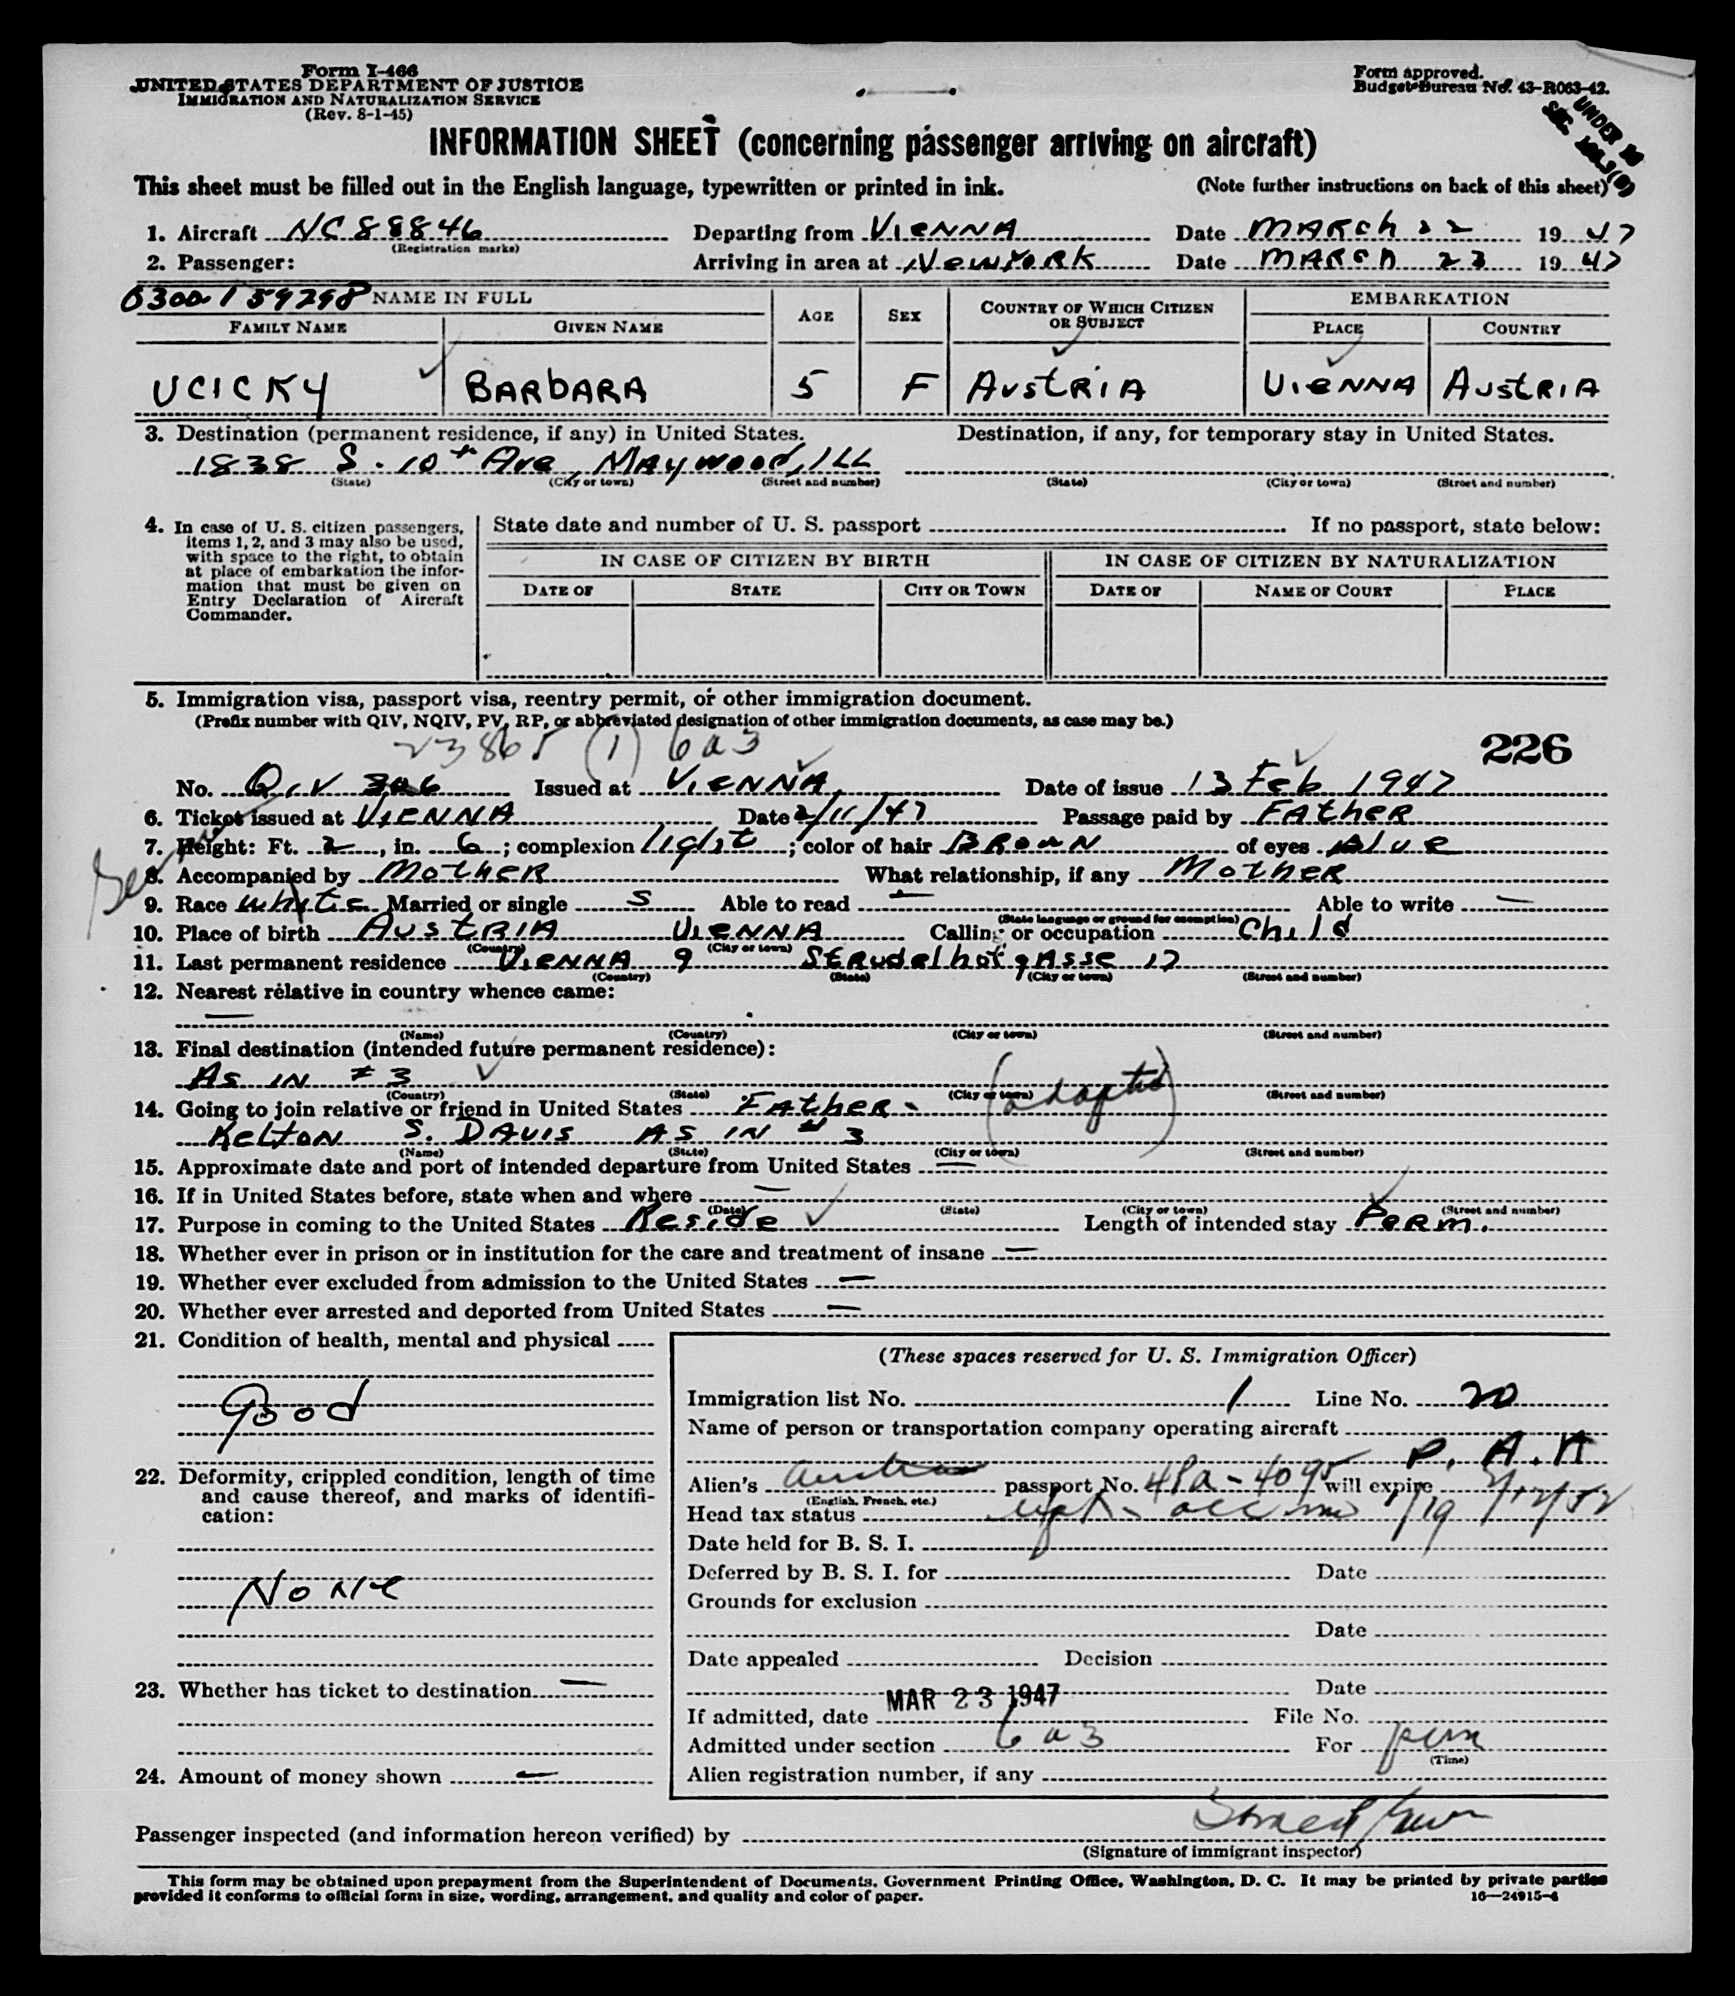 Form I-466
UNITED STATES DEPARTMENT OF JUSTICE
IMMIGRATION AND NATURALIZATION SERVICE
(Rev. 8-1-45)
Form approved.
Budget Bureau No. 43-R063-42.
UNDER 16
SEC.
INFORMATION SHEET (concerning passenger arriving on aircraft)
This sheet must be filled out in the English language, typewritten or printed in ink. (Note further instructions on back of this sheet)
1. Aircraft NC 88846 Departing from VIENNA Date MARCH 22 1947
(Registration marks)
2. Passenger: Arriving in area at NEW YORK Date MARCH 23 1947
0300-159298 NAME IN FULL AGE SEX COUNTRY OF WHICH CITIZEN OR SUBJECT EMBARKATION
FAMILY NAME GIVEN NAME PLACE COUNTRY
UCICKY BARBARA 5 F AUSTRIA VIENNA AUSTRIA
3. Destination (permanent residence, if any) in United States. Destination, if any, for temporary stay in United States.
1838 S. 10th Ave, MAYWOOD, ILL
(State) (City or town) (Street and number) (State) (City or town) (Street and number)
4. In case of U. S. citizen passengers, items 1, 2, and 3 may also be used, with space to the right, to obtain at place of embarkation the information that must be given on Entry Declaration of Aircraft Commander.
State date and number of U. S. passport If no passport, state below:
IN CASE OF CITIZEN BY BIRTH IN CASE OF CITIZEN BY NATURALIZATION
DATE OF STATE CITY OR TOWN DATE OF NAME OF COURT PLACE
5. Immigration visa, passport visa, reentry permit, or other immigration document.
(Prefix number with QIV, NQIV, PV, RP, or abbreviated designation of other immigration documents, as case may be.)
23865 (1) 6a3
226
No. QIV 306 Issued at VIENNA Date of issue 13 Feb 1947
6. Ticket issued at VIENNA Date 2/11/47 Passage paid by FATHER
7. Height: Ft. 2, in. 6; complexion light; color of hair BROWN of eyes blue
8. Accompanied by MOTHER What relationship, if any MOTHER
9. Race white Married or single S Able to read — Able to write —
(State language or ground for exemption)
10. Place of birth AUSTRIA VIENNA Calling or occupation Child
(Country) (City or town)
11. Last permanent residence VIENNA 9 STRUDELHOFGASSE 17
(Country) (State) (City or town) (Street and number)
12. Nearest relative in country whence came:
—
(Name) (Country) (City or town) (Street and number)
13. Final destination (intended future permanent residence):
AS IN # 3
(Country) (State) (City or town) (Street and number)
14. Going to join relative or friend in United States FATHER - (adopted)
KELTON S. DAVIS AS IN # 3
(Name) (State) (City or town) (Street and number)
15. Approximate date and port of intended departure from United States —
16. If in United States before, state when and where —
(Date) (State) (City or town) (Street and number)
17. Purpose in coming to the United States Reside Length of intended stay PERM.
18. Whether ever in prison or in institution for the care and treatment of insane —
19. Whether ever excluded from admission to the United States —
20. Whether ever arrested and deported from United States —
21. Condition of health, mental and physical
Good
22. Deformity, crippled condition, length of time and cause thereof, and marks of identification:
NONE
23. Whether has ticket to destination —
24. Amount of money shown —
(These spaces reserved for U. S. Immigration Officer)
Immigration list No. 1 Line No. 20
Name of person or transportation company operating aircraft
P. A. A
Alien's Austrian passport No. 4Pa-4095 will expire 2/12/52
(English, French, etc.)
Head tax status
Date held for B. S. I.
Deferred by B. S. I. for Date
Grounds for exclusion
Date
Date appealed Decision
Date
If admitted, date MAR 23 1947 File No.
Admitted under section 6a3 For perm
(Time)
Alien registration number, if any
Passenger inspected (and information hereon verified) by
(Signature of immigrant inspector)
This form may be obtained upon prepayment from the Superintendent of Documents, Government Printing Office, Washington, D. C. It may be printed by private parties
provided it conforms to official form in size, wording, arrangement, and quality and color of paper. 16—24915-4